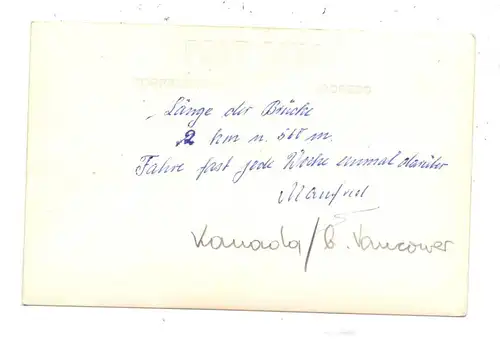 Länge der Brücke
2 km u. 500 m.
Fahre fast jede Woche einmal darüber
Manfred
Kanada / b. Vancouver